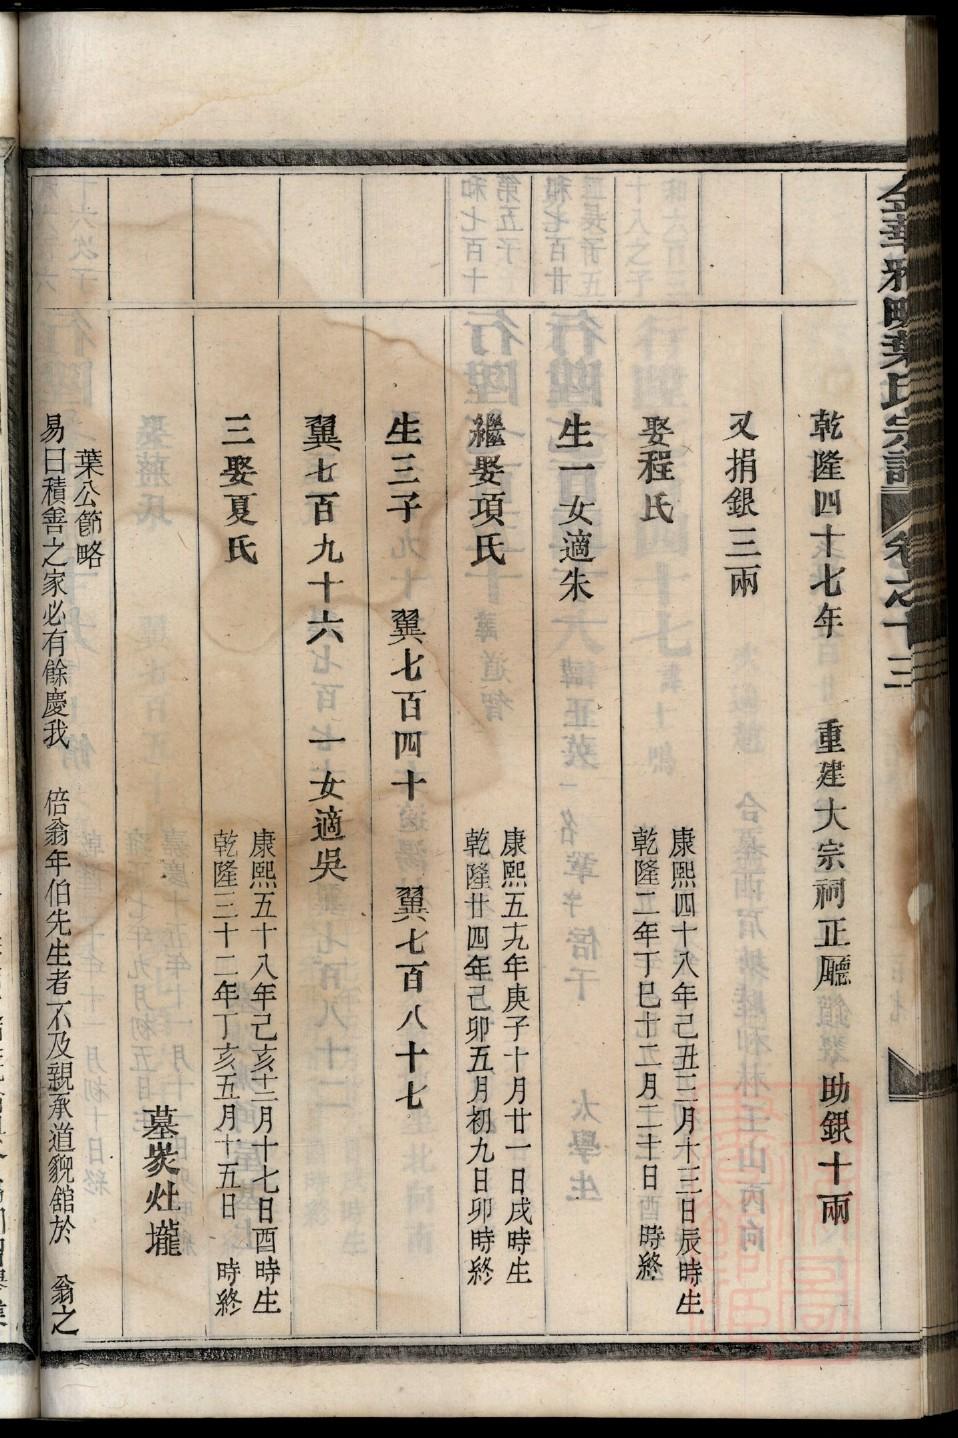 葉氏宗譜
卷之十三
乾隆四十七年 重建大宗祠正廳 助銀十兩
又捐銀三兩
娶程氏 康熙四十八年己丑二月十三日辰時生
乾隆二年丁巳十二月二十日 時終
生一女適朱
繼娶項氏 康熙五十九年庚子十月廿一日戌時生
乾隆廿四年己卯五月初九日卯時終
生三子 翼七百四十 翼七百八十七
翼七百九十六 一女適吳
三娶夏氏 康熙五十八年己亥十二月十七日酉時生
乾隆三十二年丁亥五月十五日 時終
墓炭灶壠
葉公節略
易曰積善之家必有餘慶我 倍翁年伯先生者不及親承道貌舘於 翁之